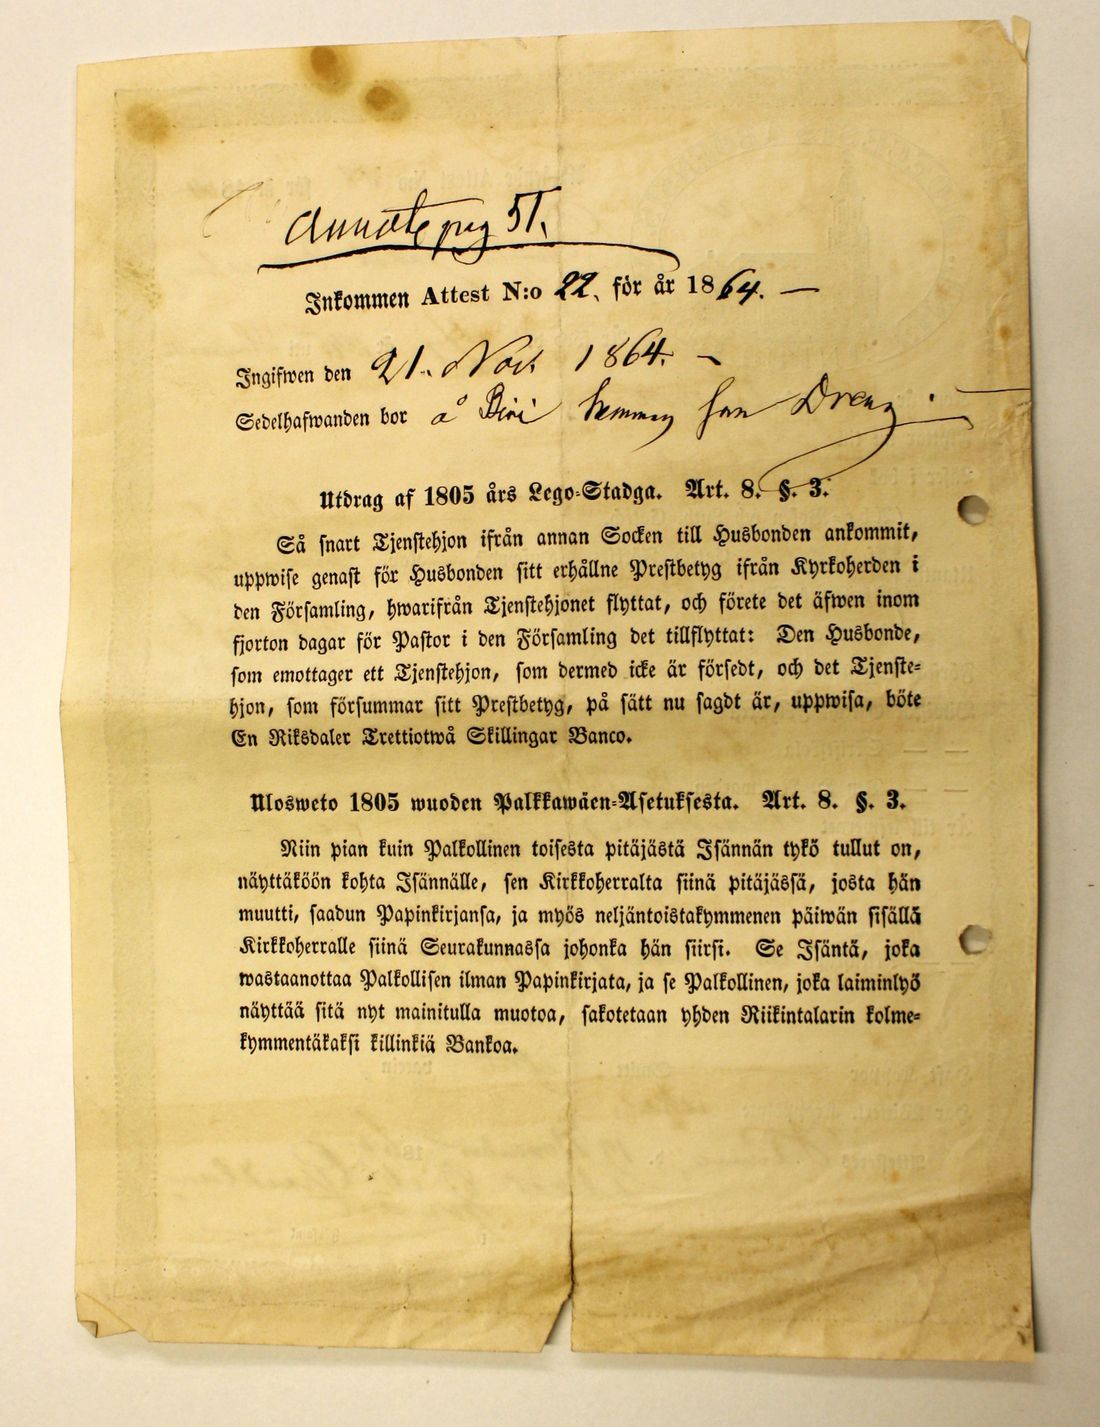 Annot. pag 51.
Inkommen Attest N:o 22. för år 1864. —
Ingifwen den 21. Nov. 1864. —
Sedelhafwanden bor å hemman som Dreng.
Utdrag af 1805 års Lego-Stadga. Art. 8. §. 3.
Så snart Tjenstehjon ifrån annan Socken till Husbonden ankommit,
uppwise genast för Husbonden sitt erhållne Prestbetyg ifrån Kyrkoherden i
den Församling, hwarifrån Tjenstehjonet flyttat, och förete det äfwen inom
fjorton dagar för Pastor i den Församling det tillflyttat: Den Husbonde,
som emottager ett Tjenstehjon, som dermed icke är försedt, och det Tjenste-
hjon, som försummar sitt Prestbetyg, på sätt nu sagdt är, uppwisa, böte
En Riksdaler Trettiotwå Skillingar Banco.
Ulosweto 1805 wuoden Palkkawäen-Asetuksesta. Art. 8. §. 3.
Niin pian kuin Palkollinen toisesta pitäjästä Isännän tykö tullut on,
näyttäköön kohta Isännälle, sen Kirkkoherralta siinä pitäjässä, josta hän
muutti, saadun Papinkirjansa, ja myös neljäntoistakymmenen päiwän sisällä
Kirkkoherralle siinä Seurakunnassa johonka hän siirsi. Se Isäntä, joka
wastaanottaa Palkollisen ilman Papinkirjata, ja se Palkollinen, joka laiminlyö
näyttää sitä nyt mainitulla muotoa, sakotetaan yhden Riikintalarin kolme-
kymmentäkaksi killinkiä Bankoa.